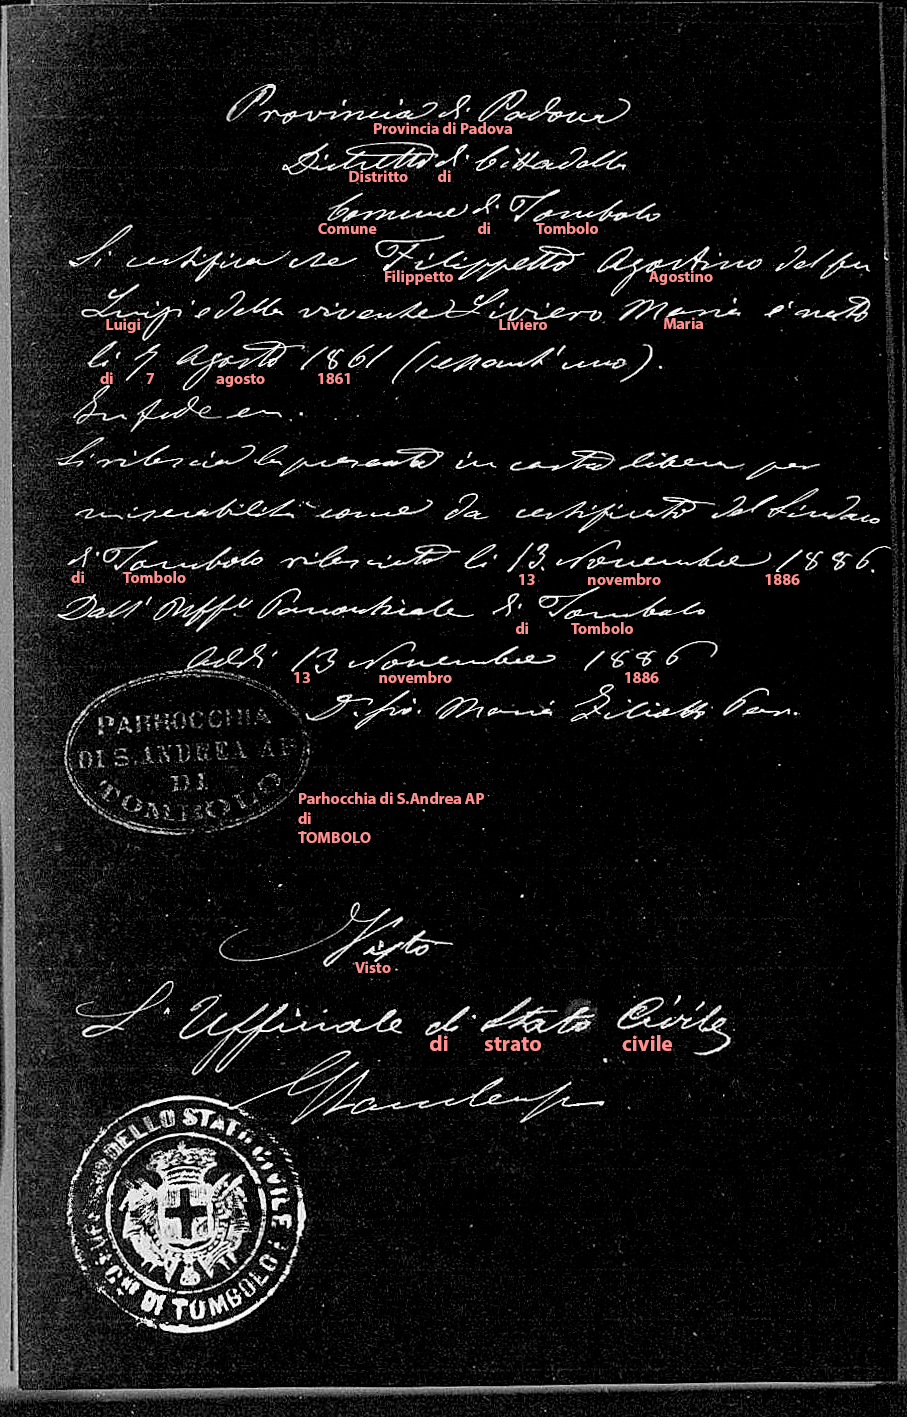 Provincia di Padova
Provincia di Padova
Distretto di Cittadella
Distritto di
Comune di Tombolo
Comune di Tombolo
Si certifica che Filippetto Agostino del fu
Filippetto Agostino
Luigi e della vivente Liviero Maria è nato
Luigi Liviero Maria
li 7 Agosto 1861 (sessant'uno).
di 7 agosto 1861
In fede
Si rilascia la presente in carta libera per
miserabilità come da certificato del Sindaco
di Tombolo rilasciato li 13 Novembre 1886.
di Tombolo 13 novembro 1886
Dall' Uff.º Parrochiale di Tombolo
di Tombolo
Addi 13 Novembre 1886
13 novembro 1886
Maria Par.
PARROCCHIA
DI S. ANDREA AP
DI
TOMBOLO
Parhocchia di S.Andrea AP
di
TOMBOLO
Visto
Visto
L'Ufficiale di Stato Civile
di strato civile
DELLO STATO CIVILE
DI TOMBOLO